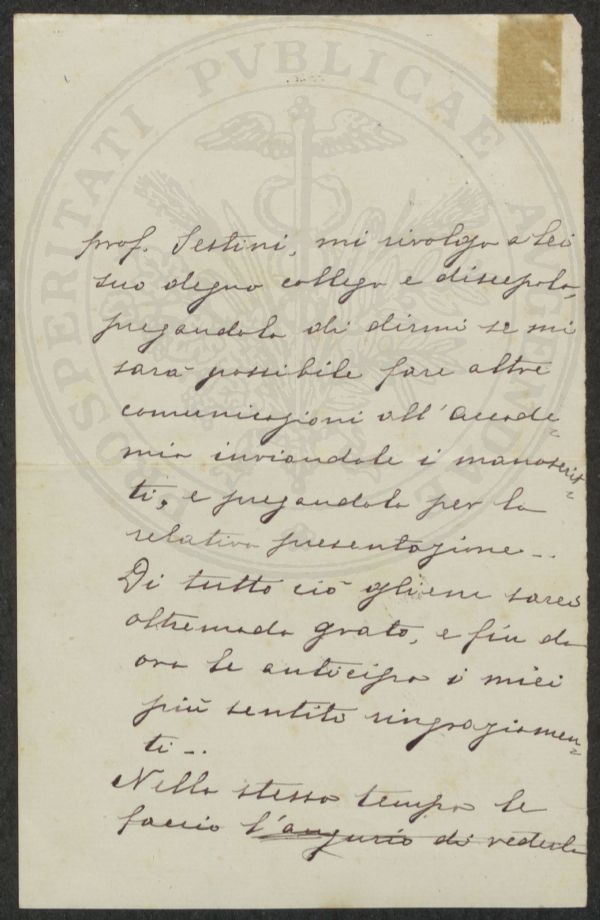 PROSPERITATI PVBLICAE AVGENDAE
prof. Sestini, mi rivolgo a Lei
suo degno collega e discepolo,
pregandola di dirmi se mi
sarà possibile fare altre
comunicazioni all'Accade=
mia inviandole i manoscrit=
ti, e pregandola per la
relativa presentazione...
Di tutto ciò gliene sarei
oltremodo grato, e fin da
ora le anticipo i miei
più sentiti ringraziamen=
ti...
Nello stesso tempo le
faccio l'augurio di vederla